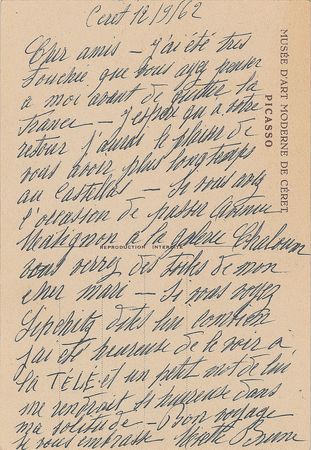 Ceret 12/9/62
Cher amis — j'ai été très
touchée que vous ayez penser
a moi avant de quitter la
France — j'espère qu'a votre
retour j'aurai le plaisir de
vous avoir plus longtemps
au Castellas — Si vous avez
l'occasion de passer Avenue
Matignon à la galerie
vous verrez des toiles de mon
cher mari — Si vous voyez
Lipchitz dites lui combien
j'ai été heureuse de le voir a
la TÉLÉ et un petit mot de lui
me rendrait si heureuse dans
ma solitude — Bon voyage
Je vous embrasse
REPRODUCTION INTERDITE
MUSÉE D'ART MODERNE DE CÉRET
PICASSO